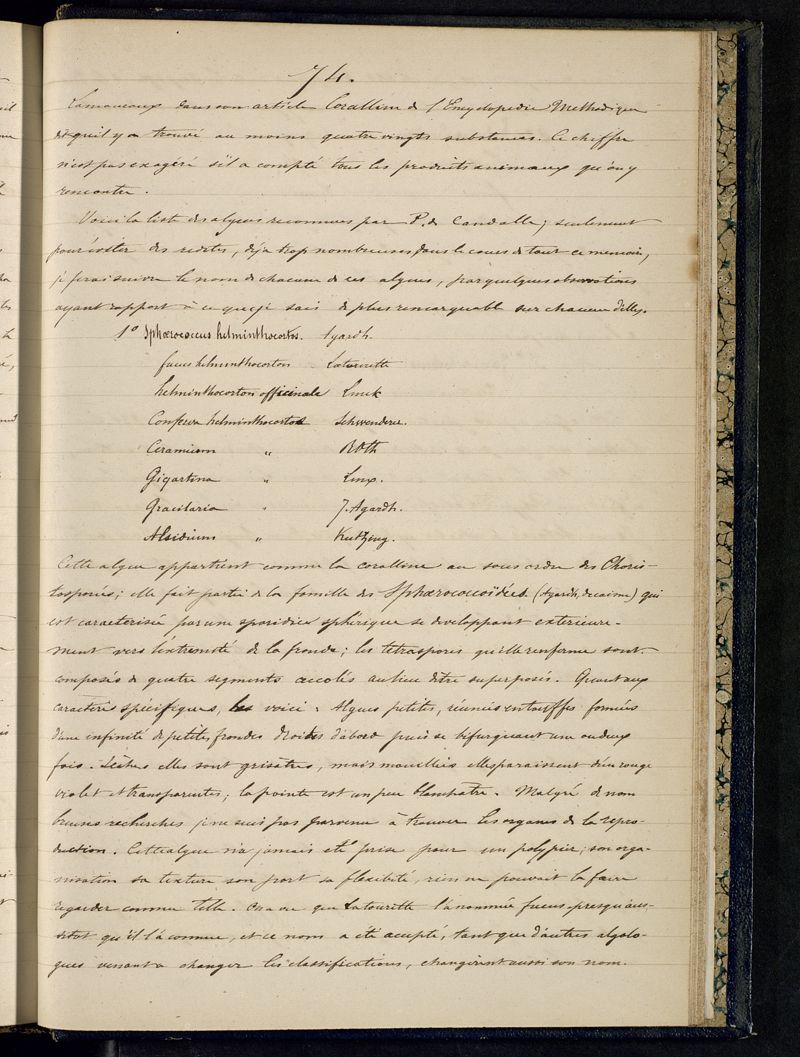 74.
Lamouroux dans son article Coralline de l'Encyclopedie Methodique
dit qu'il y a trouvé au moins quatre vingts substances. Ce chiffre
n'est pas exagéré s'il a compté tous les produits animaux qu'on y
rencontre.
Voici la liste des algues reconnues par P. de Candolle; seulement
pour éviter des redites, déja trop nombreuses dans le cours de tout ce memoire,
je ferai suivre le nom de chacune de ces algues, par quelques observations
ayant rapport à ce que je sais de plus remarquable sur chacune d'elles.
1° Sphærococcus helminthocortos. Agardh.
fucus helminthocorton Latourette
helminthocorton officinale Linck
Conferva helminthocortos Schwendere.
Ceramium " Roth
Gigartina " Lmx.
Gracilaria " J. Agardh.
Alsidium " Kutzing.
Cette algue appartient comme la coralline au sous ordre des Choris-
tosporées; elle fait partie de la famille des Sphærococcoïdées (Agardh, decaisne) qui
est caracterisée par une sporidie sphérique se developpant exterieure-
ment vers l'extremité de la fronde; les tétraspores qu'elle renferme sont
composés de quatre segments accolés au lieu d'être superposés. Quant aux
caractères spécifiques, les voici: Algues petites, réunies en touffes formées
d'une infinité de petites frondes droites d'abord puis se bifurquant une ou deux
fois. Sèches elles sont grisatres, mais mouillées elles paraissent d'un rouge
violet et transparentes; la pointe est un peu blanchatre. Malgré de nom
breuses recherches je ne suis pas parvenu à trouver les organes de la repro-
duction. Cette algue n'a jamais eté prise pour un polypier; son orga-
nisation sa texture son port sa flexibité, rien ne pouvait la faire
regarder comme telle. On a vu que Latourette l'a nommée fucus presqu'aus-
sitot qu'il l'a connue, et ce nom a été accepté, tant que d'autres algolo-
gues venant a changer les classifications, changèrent aussi son nom.